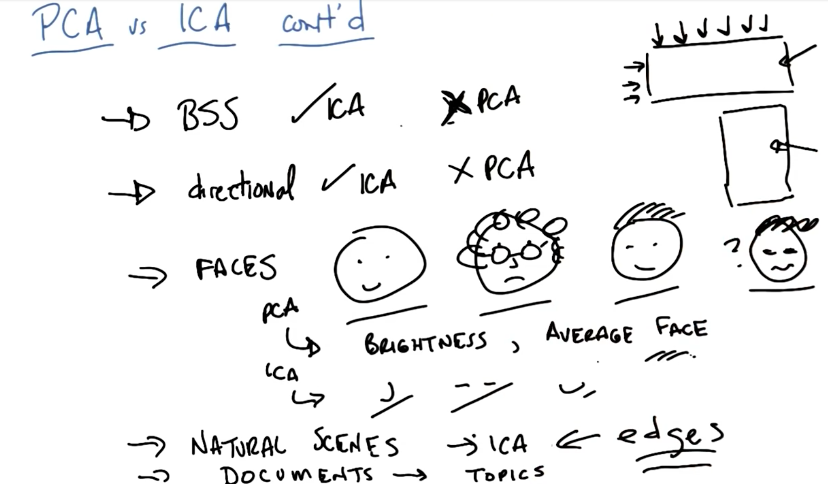 PCA vs ICA cont'd
→ BSS ✓ICA ✗PCA
→ directional ✓ICA ✗PCA
→ FACES
?
PCA
↳ BRIGHTNESS, AVERAGE FACE
ICA
↳
→ NATURAL SCENES → ICA ← edges
→ DOCUMENTS → TOPICS